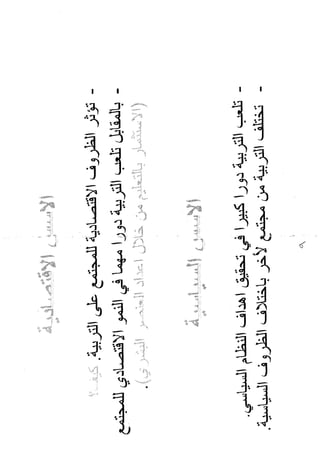 الاسس الاقتصادية
- تؤثر الظروف الاقتصادية للمجتمع على التربية. كيف؟!
- بالمقابل تلعب التربية دورا مهما في النمو الاقتصادي للمجتمع
(الاستثمار بالتعليم من خلال اعداد العنصر البشري).
الاسس السياسية
- تلعب التربية دورا كبيرا في تحقيق اهداف النظام السياسي.
- تختلف التربية من مجتمع لأخر باختلاف الظروف السياسية.
٩